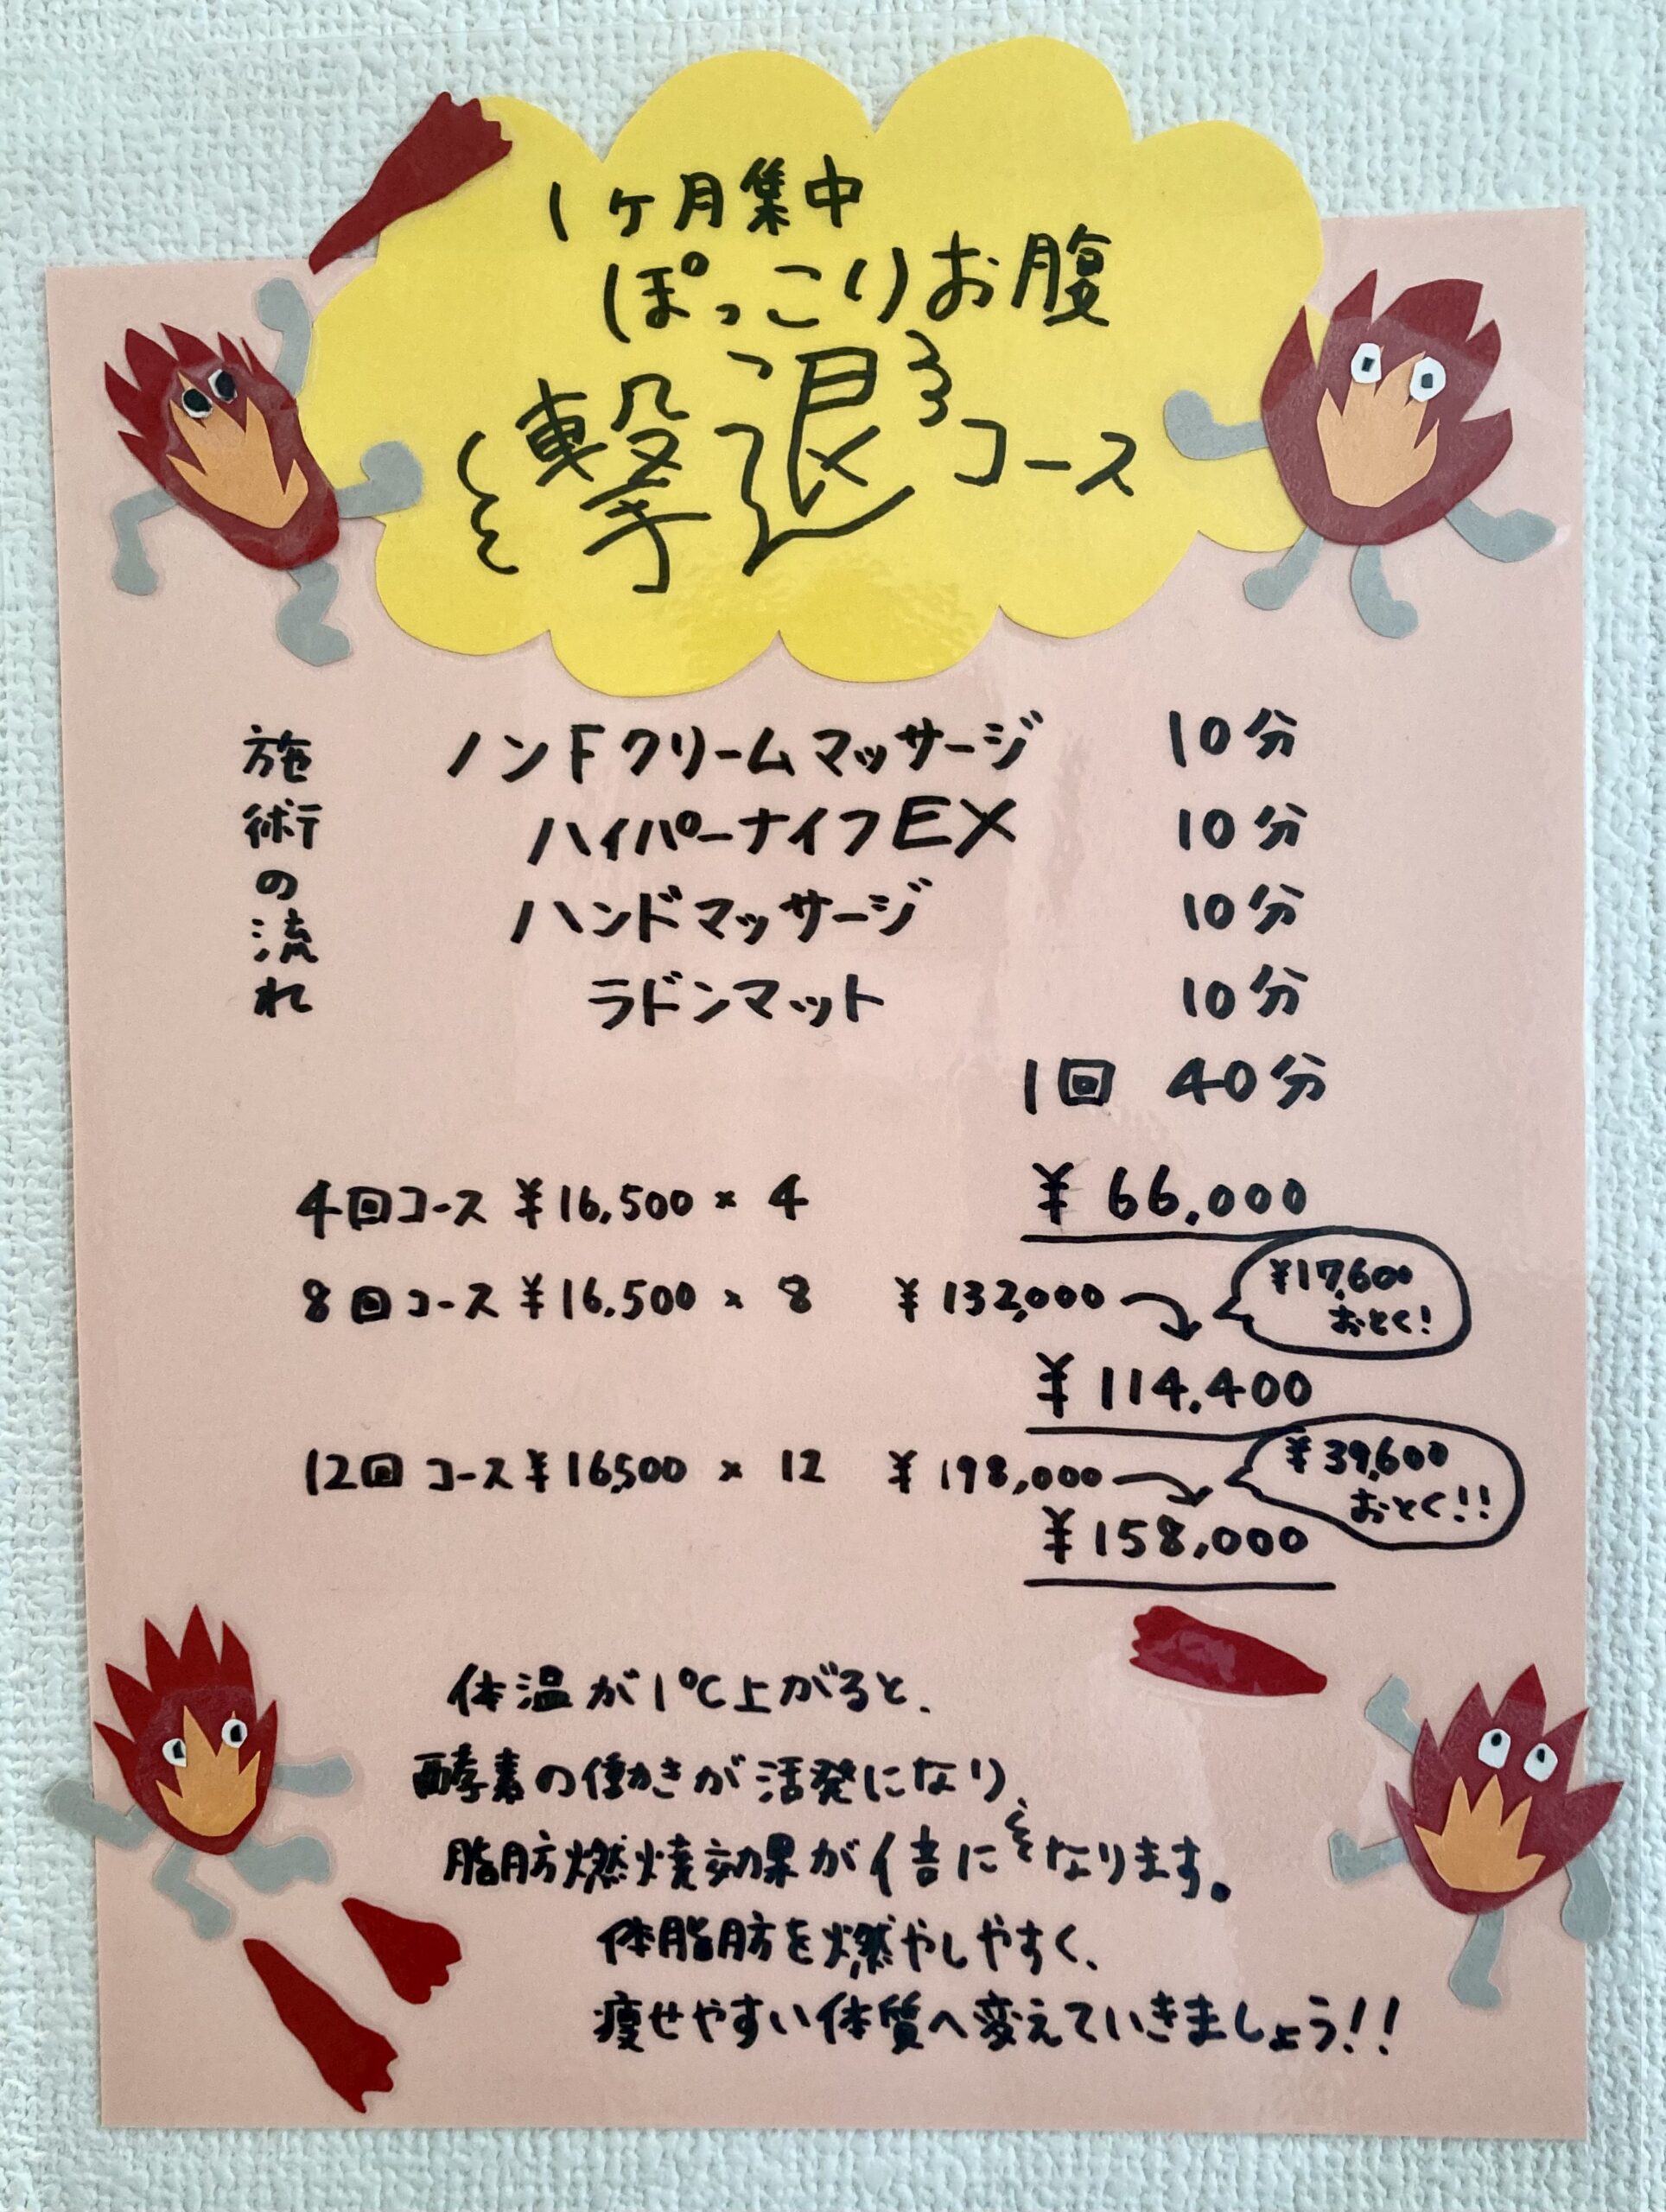 1ヶ月集中
ぽっこりお腹
撃退コース
施術の流れ
ノンFクリームマッサージ 10分
ハイパーナイフEX 10分
ハンドマッサージ 10分
ラドンマット 10分
1回 40分
4回コース ¥16,500 × 4 ¥66,000
8回コース ¥16,500 × 8 ¥132,000
¥17,600
おとく!
¥114,400
12回コース ¥16,500 × 12 ¥198,000
¥39,600
おとく!!
¥158,000
体温が1℃上がると、
酵素の働きが活発になり、
脂肪燃焼効果が倍になります。
体脂肪を燃やしやすく、
痩せやすい体質へ変えていきましょう!!